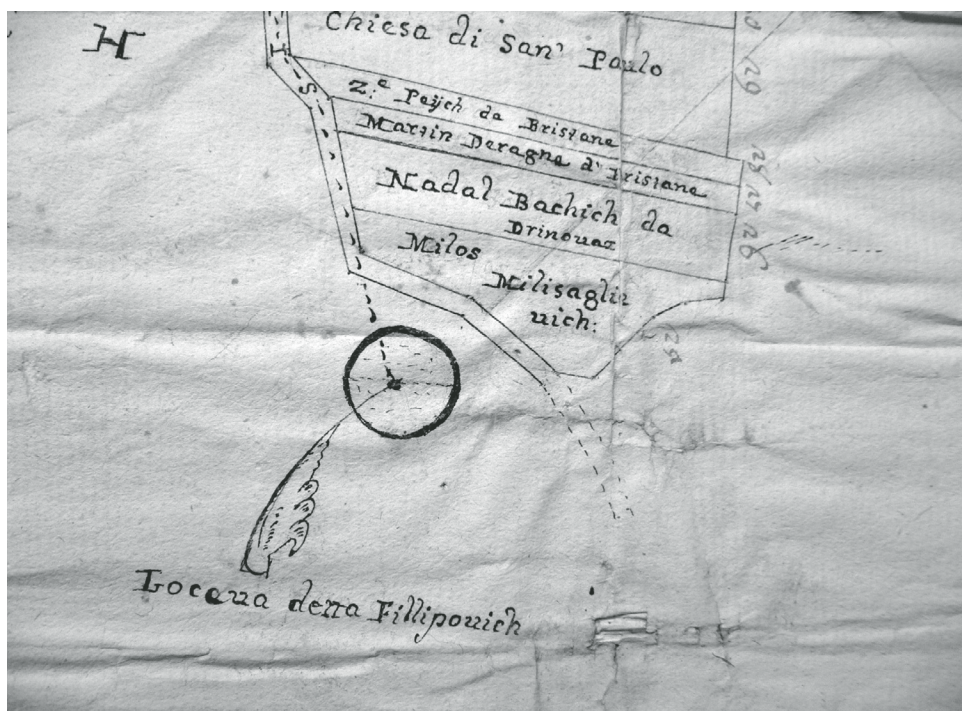 H
Chiesa di San' Paulo
20
S
Z:e Paÿch da Bristane
25
Martin Deragne d' Bristane
27
Nadal Bachich da
Drinouaz
26
Milos
Milisagliu
uich:
Loceua detta Fillipouich